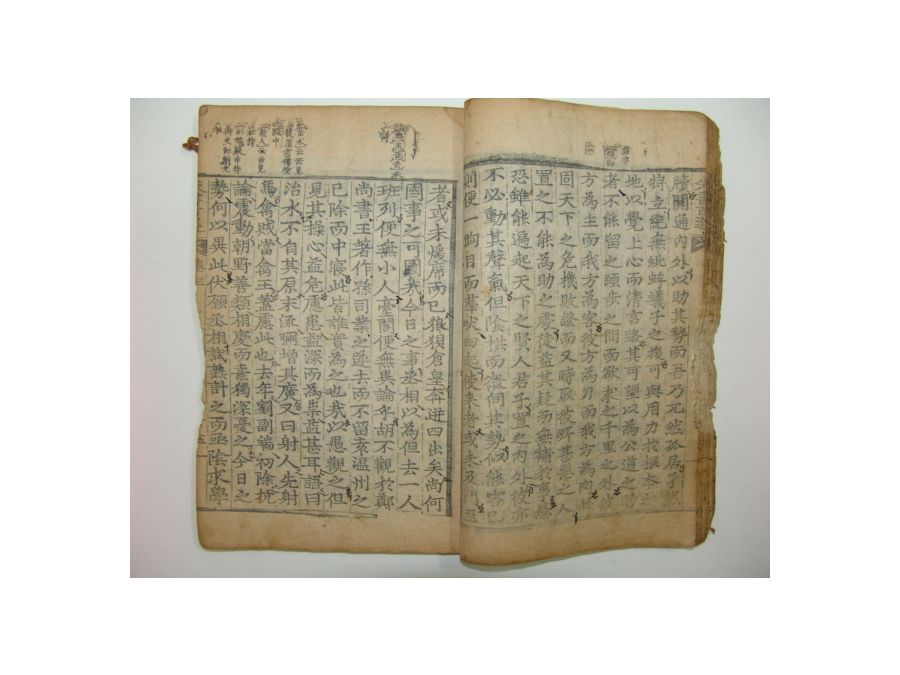 朱書百選
牘關通內外以助其勢而吾乃兀然孤居孑然
特立絶無蚍蜉蟻子之援可與用力於根本之
地以覺上心而清言路其可望以為公道之
者不能留之頭步之間而欲求之千里之外彼
方為主而我方為客彼方為刀而我方為肉
固天下之危機敗證而又時取彼所甚惡之人
置之不能為助之處徒益其疑而無補於事愚
恐雖能遍起天下之賢人君子置之內外彼亦
不必動其聲氣但陰拱而微伺其勢似能害己
則便一眴目而羣吠四起使來者或未及門至
者或未煖席而已狼狽倉皇奔迸四出矣尚何
國事之可圖哉今日之事丞相以為但去一人
班列便無小人臺閣便無異論乎胡不觀於鄭
尚書王著作孫司業之遂去而不留袁温州之
已除而中寢此皆誰實為之也哉以愚觀之但
見其操心益危慮患益深而為祟益甚耳語曰
治水不自其原末流彌增其廣又曰射人先射
馬禽賊當禽王蓋慮此也去年劉副端初除抗
論震動朝野善類相慶而熹獨深憂之今日之
勢何以異此伏願丞相試熟計之而亟陰求學
卷三